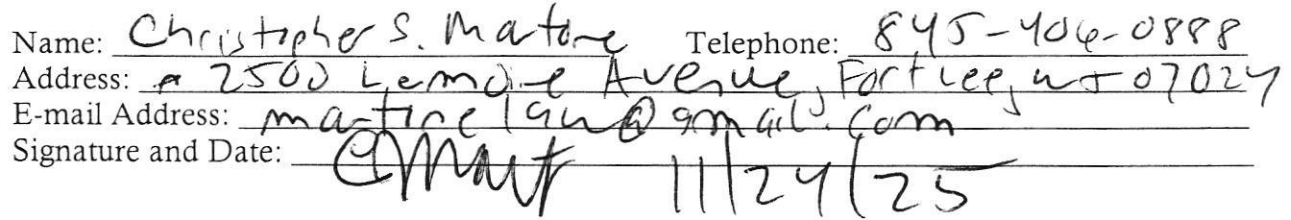 Name: Christopher S. Martone Telephone: 845-406-0888
Address: 2500 Lemoine Avenue, Fort Lee, NJ 07024
E-mail Address: martinelaw@gmail.com
Signature and Date: 11/24/25